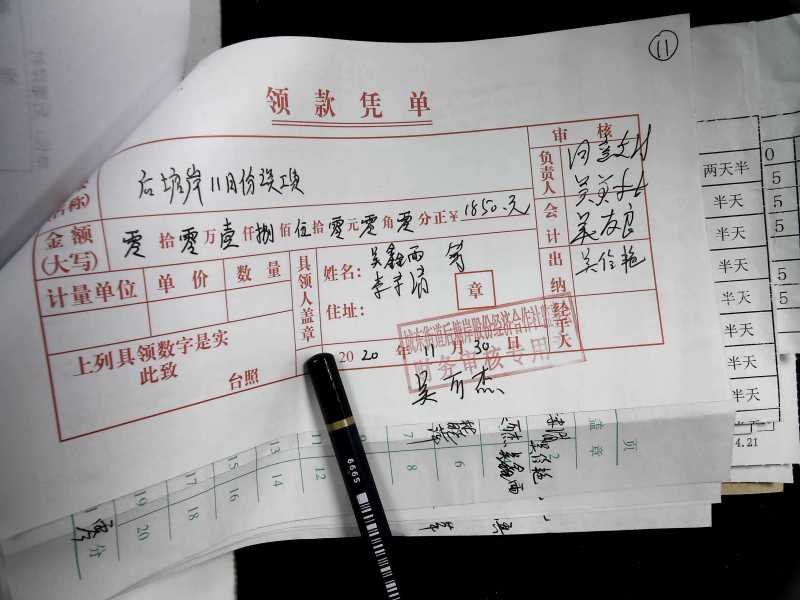 11
领款凭单
审核
后塘岸11月份误工费
金额
(大写)
零拾零万壹仟捌佰伍拾零元零角零分正¥1850.元
负责人
会计
吴友良
出纳
吴伶艳
计量单位 单价 数量
具领人盖章
姓名: 吴鑫西 等
住址:
章
经手人
上列具领数字是实
此致
台照
2020年11月30日
城东街道后塘岸股份经济合作社
财务审核专用
9995
两天半
半天
半天
半天
半天
半天
半天
半天
半天
0
5
5
5
5
5
4.21
页
盖章
6
7
8
11
12
13
14
15
16
17
18
19
20
分